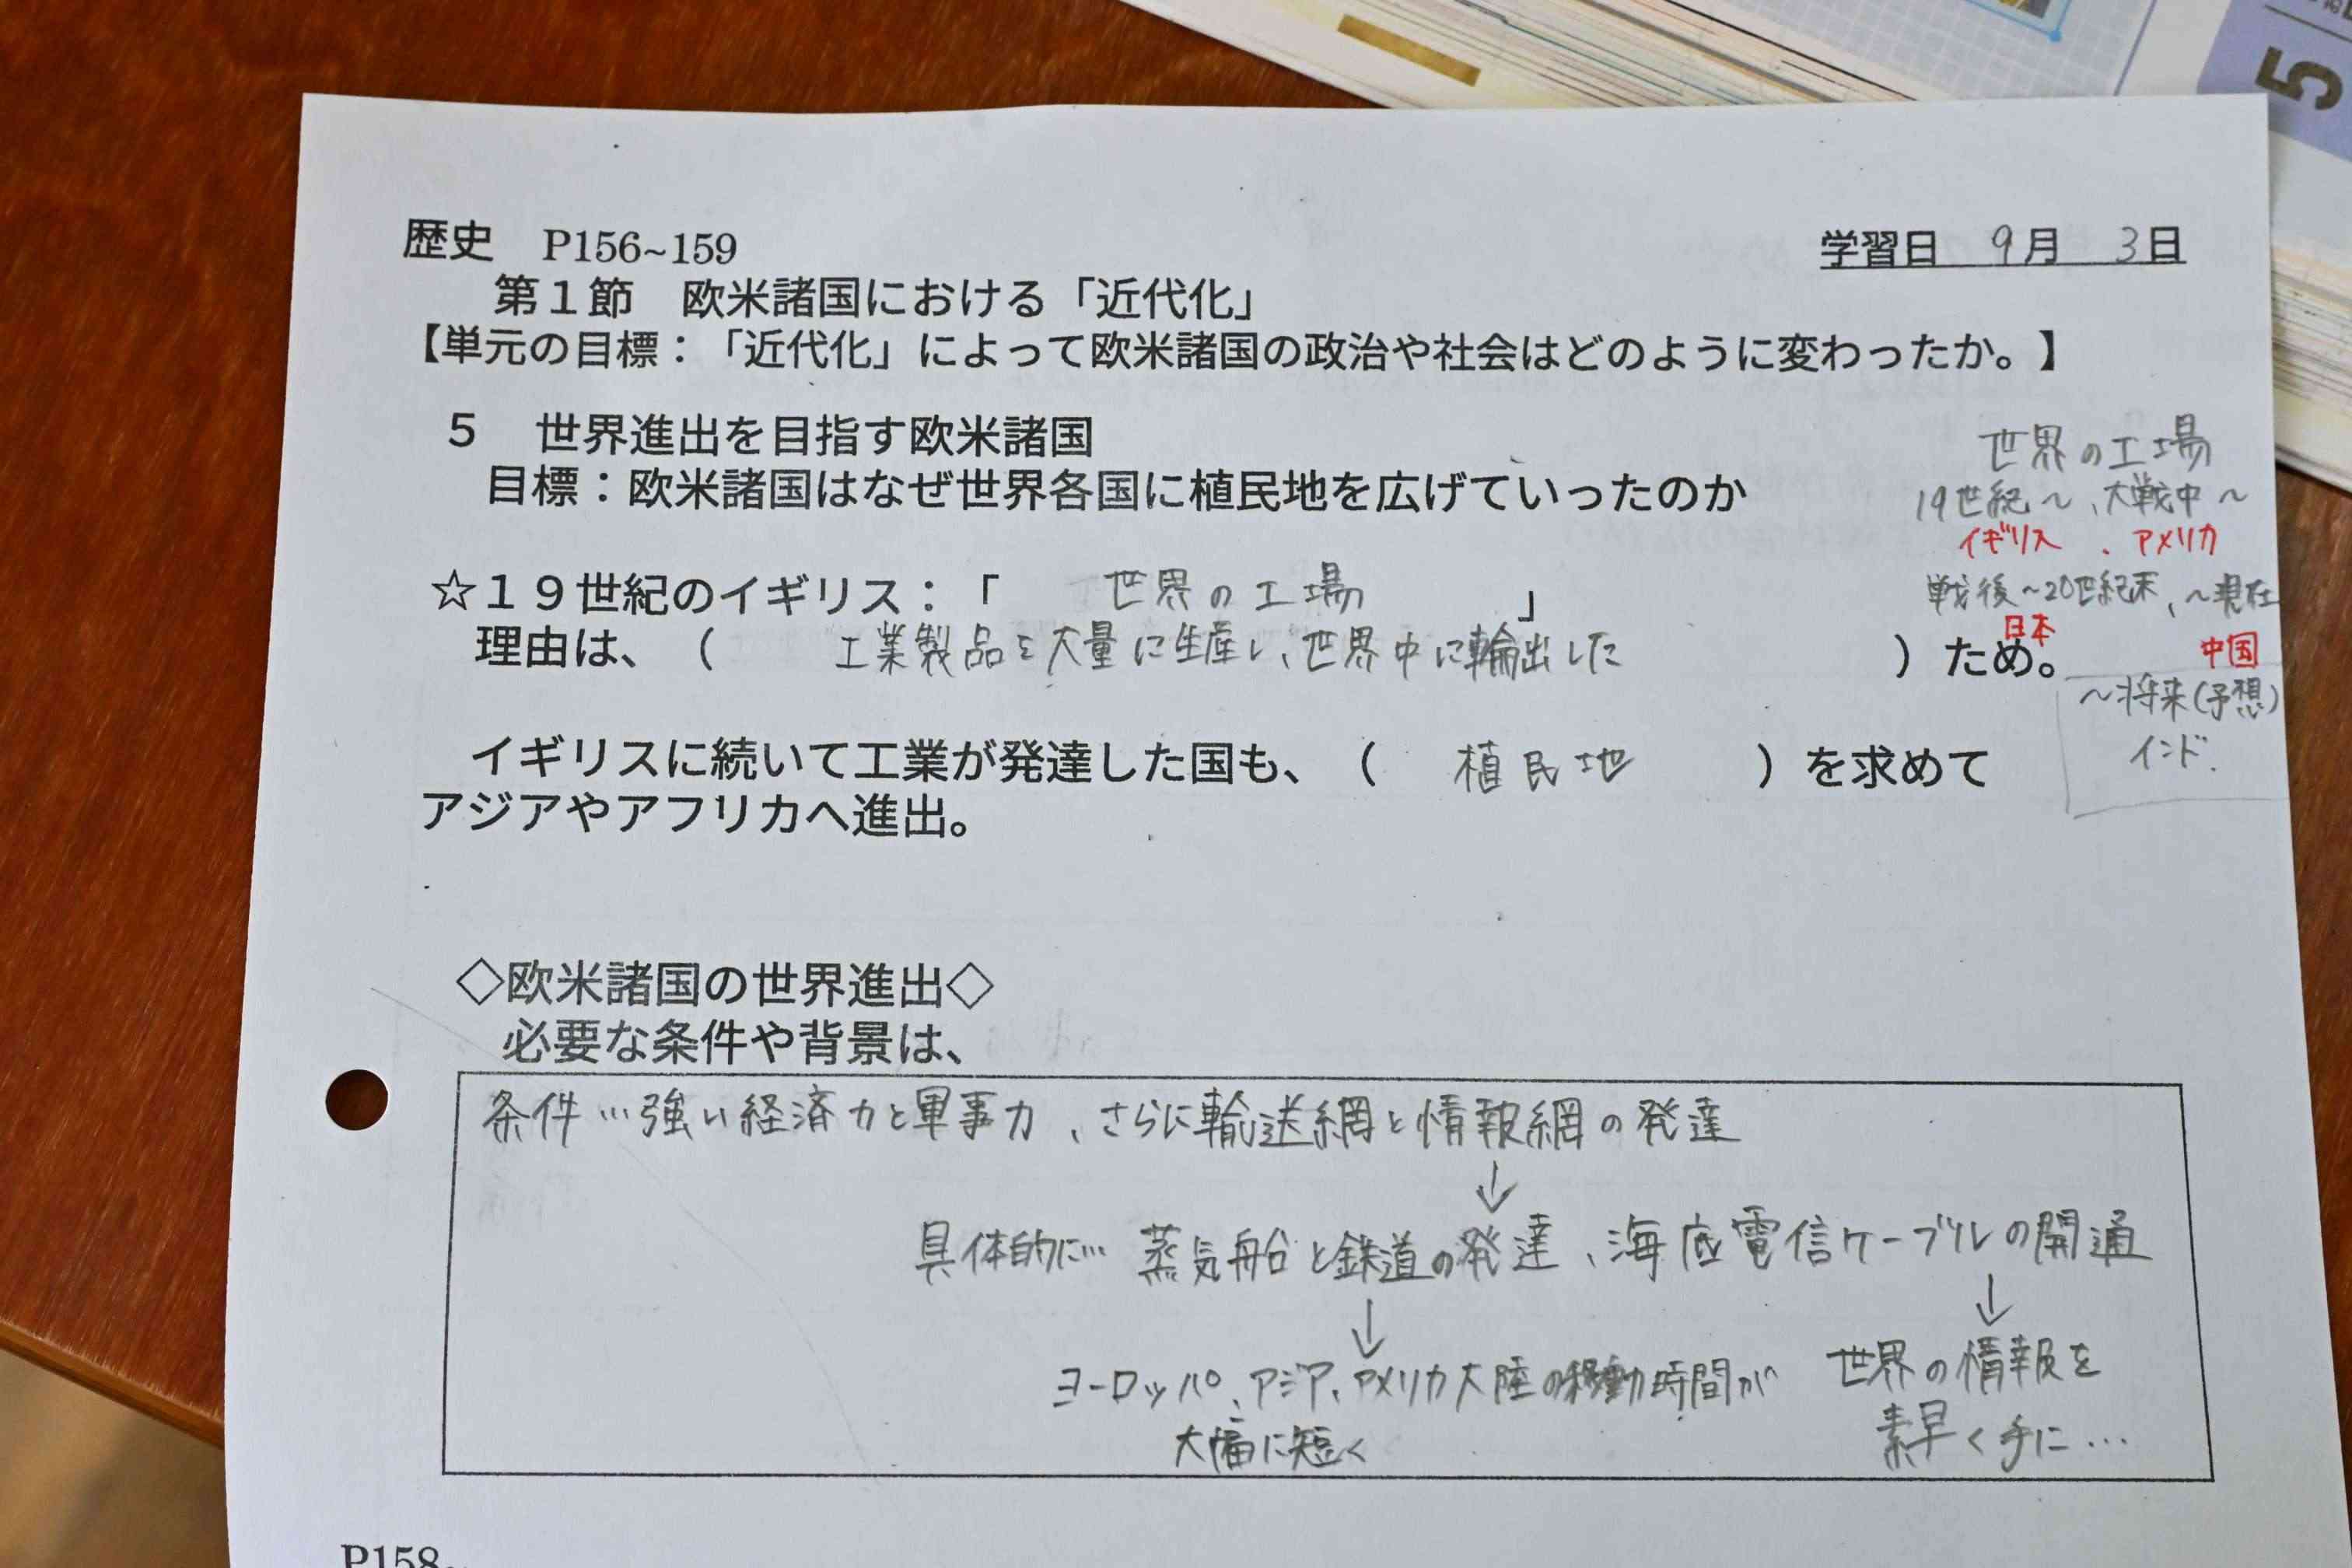 5
歴史 P156~159
学習日 9月 3日
第1節 欧米諸国における「近代化」
【単元の目標:「近代化」によって欧米諸国の政治や社会はどのように変わったか。】
5 世界進出を目指す欧米諸国
目標:欧米諸国はなぜ世界各国に植民地を広げていったのか
世界の工場
19世紀〜、大戦中〜
イギリス 、アメリカ
戦後〜20世紀末、〜現在
日本
中国
〜将来(予想)
インド.
☆19世紀のイギリス:「 世界の工場 」
理由は、( 工業製品を大量に生産し、世界中に輸出した )ため。
イギリスに続いて工業が発達した国も、( 植民地 )を求めて
アジアやアフリカへ進出。
◇欧米諸国の世界進出◇
必要な条件や背景は、
条件…強い経済力と軍事力、さらに輸送網と情報網の発達
↓
具体的に… 蒸気船と鉄道の発達、海底電信ケーブルの開通
↓ ↓
ヨーロッパ、アジア、アメリカ大陸の移動時間が
大幅に短く
世界の情報を
素早く手に…
P158~